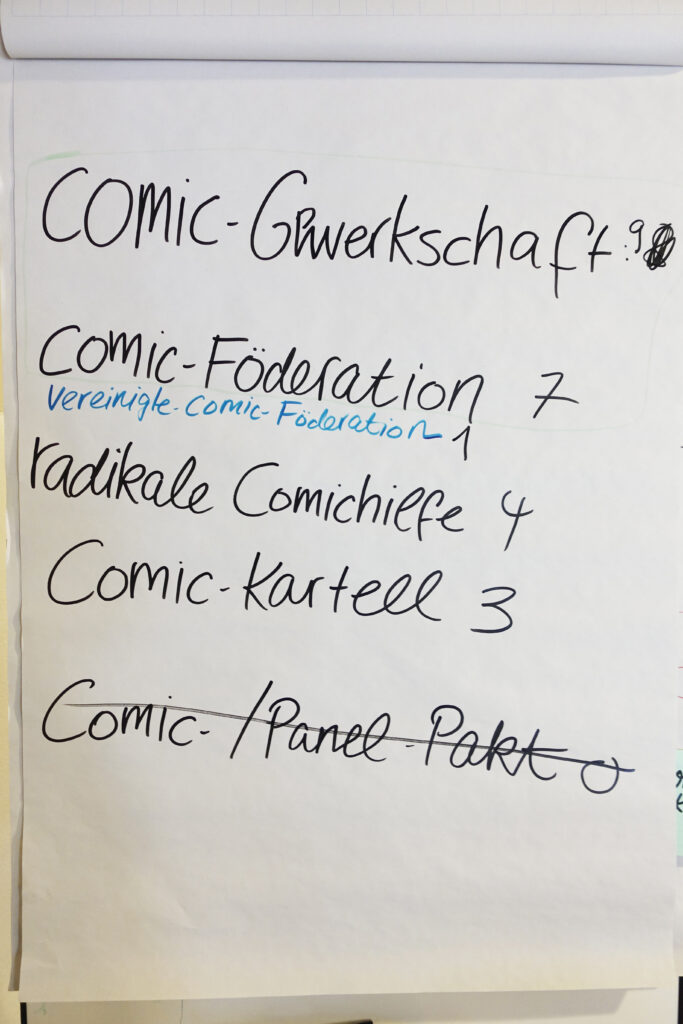 Comic-Gewerkschaft: 9
Comic-Föderation 7
Vereinigte-Comic-Föderation 1
radikale Comichilfe 4
Comic-Kartell 3
Comic-/Panel-Pakt 0